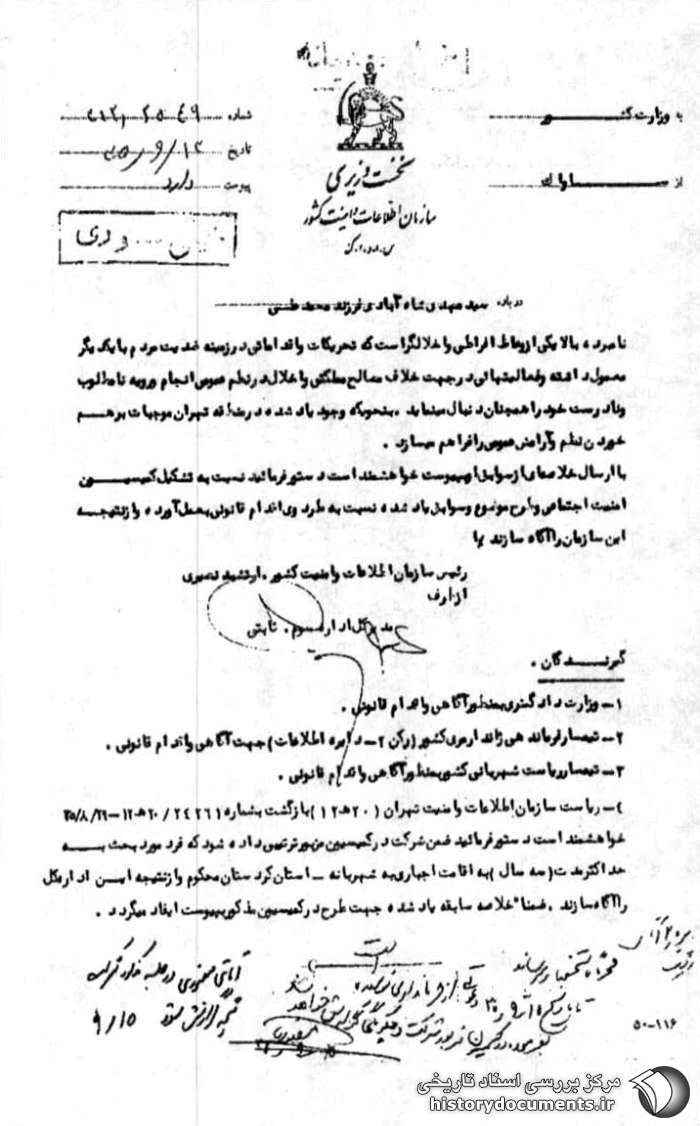 به وزارت کشور
از ساواک
شماره
تاریخ ۳۵/۹/۱۳
پیوست دارد
نخست وزیری
سازمان اطلاعات و امنیت کشور
س.ا.و.ا.ک
درباره سید مهدی شاه آبادی فرزند محمدعلی
نامبرده بالا یکی از وعاظ افراطی و اخلالگر است که تحریکات و اقداماتی در زمینه ضدیت مردم با یکدیگر
معمول داشته و فعالیتهائی در جهت خلاف مصالح مملکتی و اخلال در نظم عمومی انجام و رویه نامطلوب
و نادرست خود را همچنان دنبال مینماید . بنحویکه وجود یاد شده در منطقه تهران موجبات برهم
خوردن نظم و آرامش عمومی را فراهم میسازد .
با ارسال خلاصه‌ای از سوابق او بپیوست خواهشمند است دستور فرمائید نسبت به تشکیل کمیسیون
امنیت اجتماعی و طرح موضوع و سوابق یاد شده نسبت به طرد وی اقدام قانونی بعمل آورده و از نتیجه
این سازمان را آگاه سازند
رئیس سازمان اطلاعات و امنیت کشور . ارتشبد نصیری
از طرف
مدیر کل اداره سوم . ثابتی
گیرندگان .
۱- وزارت دادگستری بمنظور آگاهی و اقدام قانونی .
۲- تیمسار فرماندهی ژاندارمری کشور (رکن ۲- دایره اطلاعات) جهت آگاهی و اقدام قانونی .
۳- تیمسار ریاست شهربانی کشور بمنظور آگاهی و اقدام قانونی .
۴- ریاست سازمان اطلاعات و امنیت تهران (۲۰ هـ ۱۲) بازگشت بشماره ۲۴۲۶۱ / ۲۰ هـ ۱۲ - ۳۵/۸/۲۹
خواهشمند است دستور فرمائید ضمن شرکت در کمیسیون مزبور ترتیبی داده شود که فرد مورد بحث به
حداکثر مدت (سه سال) به اقامت اجباری به شهر بانه - استان کردستان محکوم و از نتیجه این اداره کل
را آگاه سازند . ضمنا" خلاصه سابقه یاد شده جهت طرح در کمیسیون مذکور بپیوست ایفاد میگردد .
۹/۱۵
۵۰-۱۱۶
مرکز بررسی اسناد تاریخی
historydocuments.ir